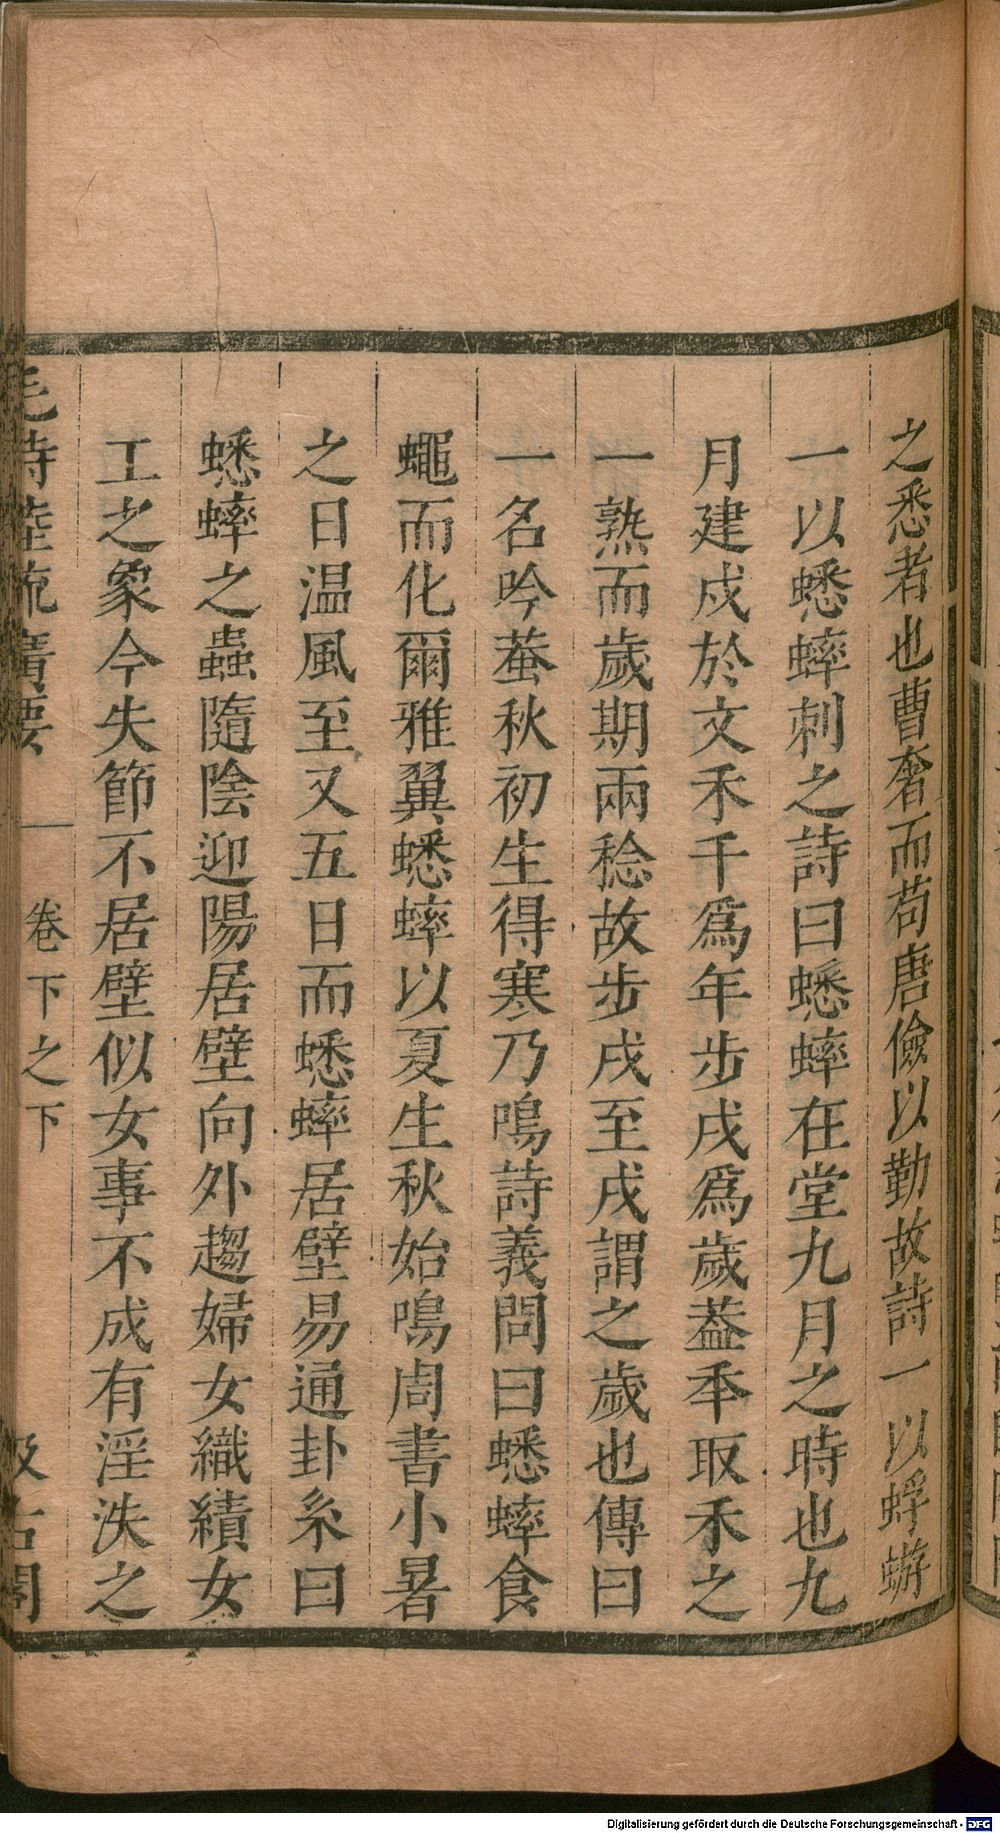 之悉者也曹奢而苟唐儉以勤故詩一以蜉蝣
一以蟋蟀刺之詩曰蟋蟀在堂九月之時也九
月建戍於文禾千為年步戌為歲葢秊取禾之
一熟而歲期兩稔故步戌至戌謂之歲也傳曰
一名吟蛬秋初生得寒乃鳴詩義問曰蟋蟀食
蠅而化爾雅翼蟋蟀以夏生秋始鳴周書小暑
之日温風至又五日而蟋蟀居壁易通卦系曰
蟋蟀之蟲隨陰迎陽居壁向外趨婦女織績女
工之象今失節不居壁似女事不成有淫泆之
毛詩陸疏廣要 卷下之下 汲古閣
Digitalisierung gefördert durch die Deutsche Forschungsgemeinschaft - DFG